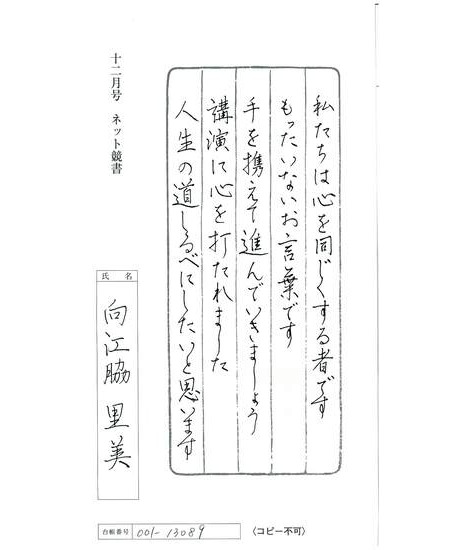 私たちは心を同じくする者です
もったいないお言葉です
手を携えて進んでいきましょう
講演に心を打たれました
人生の道しるべにしたいと思います
十二月号 ネット競書
氏名
向江脇 里美
台帳番号 001-13089
〈コピー不可〉